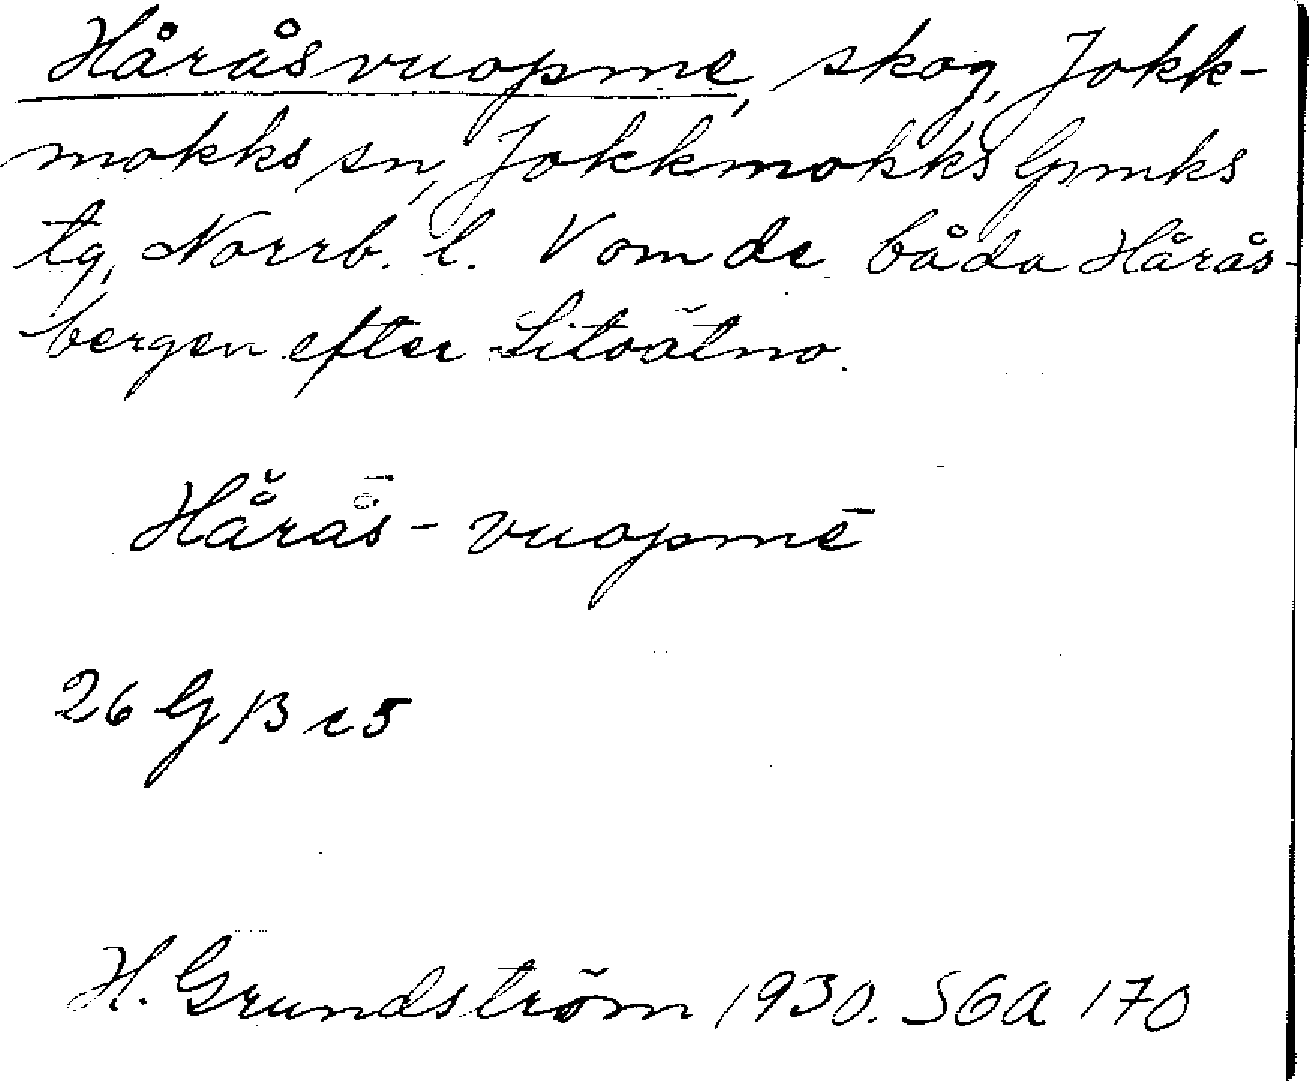 Håråsvuopme, skog, Jokk-
mokks sn, Jokkmokks lpmks
tg, Norrb. l. V om de båda Hårås-
bergen efter Sitoätno.
Hårås̄ - vuopmē
26 G B c5
H. Grundström 1930. SGA 170